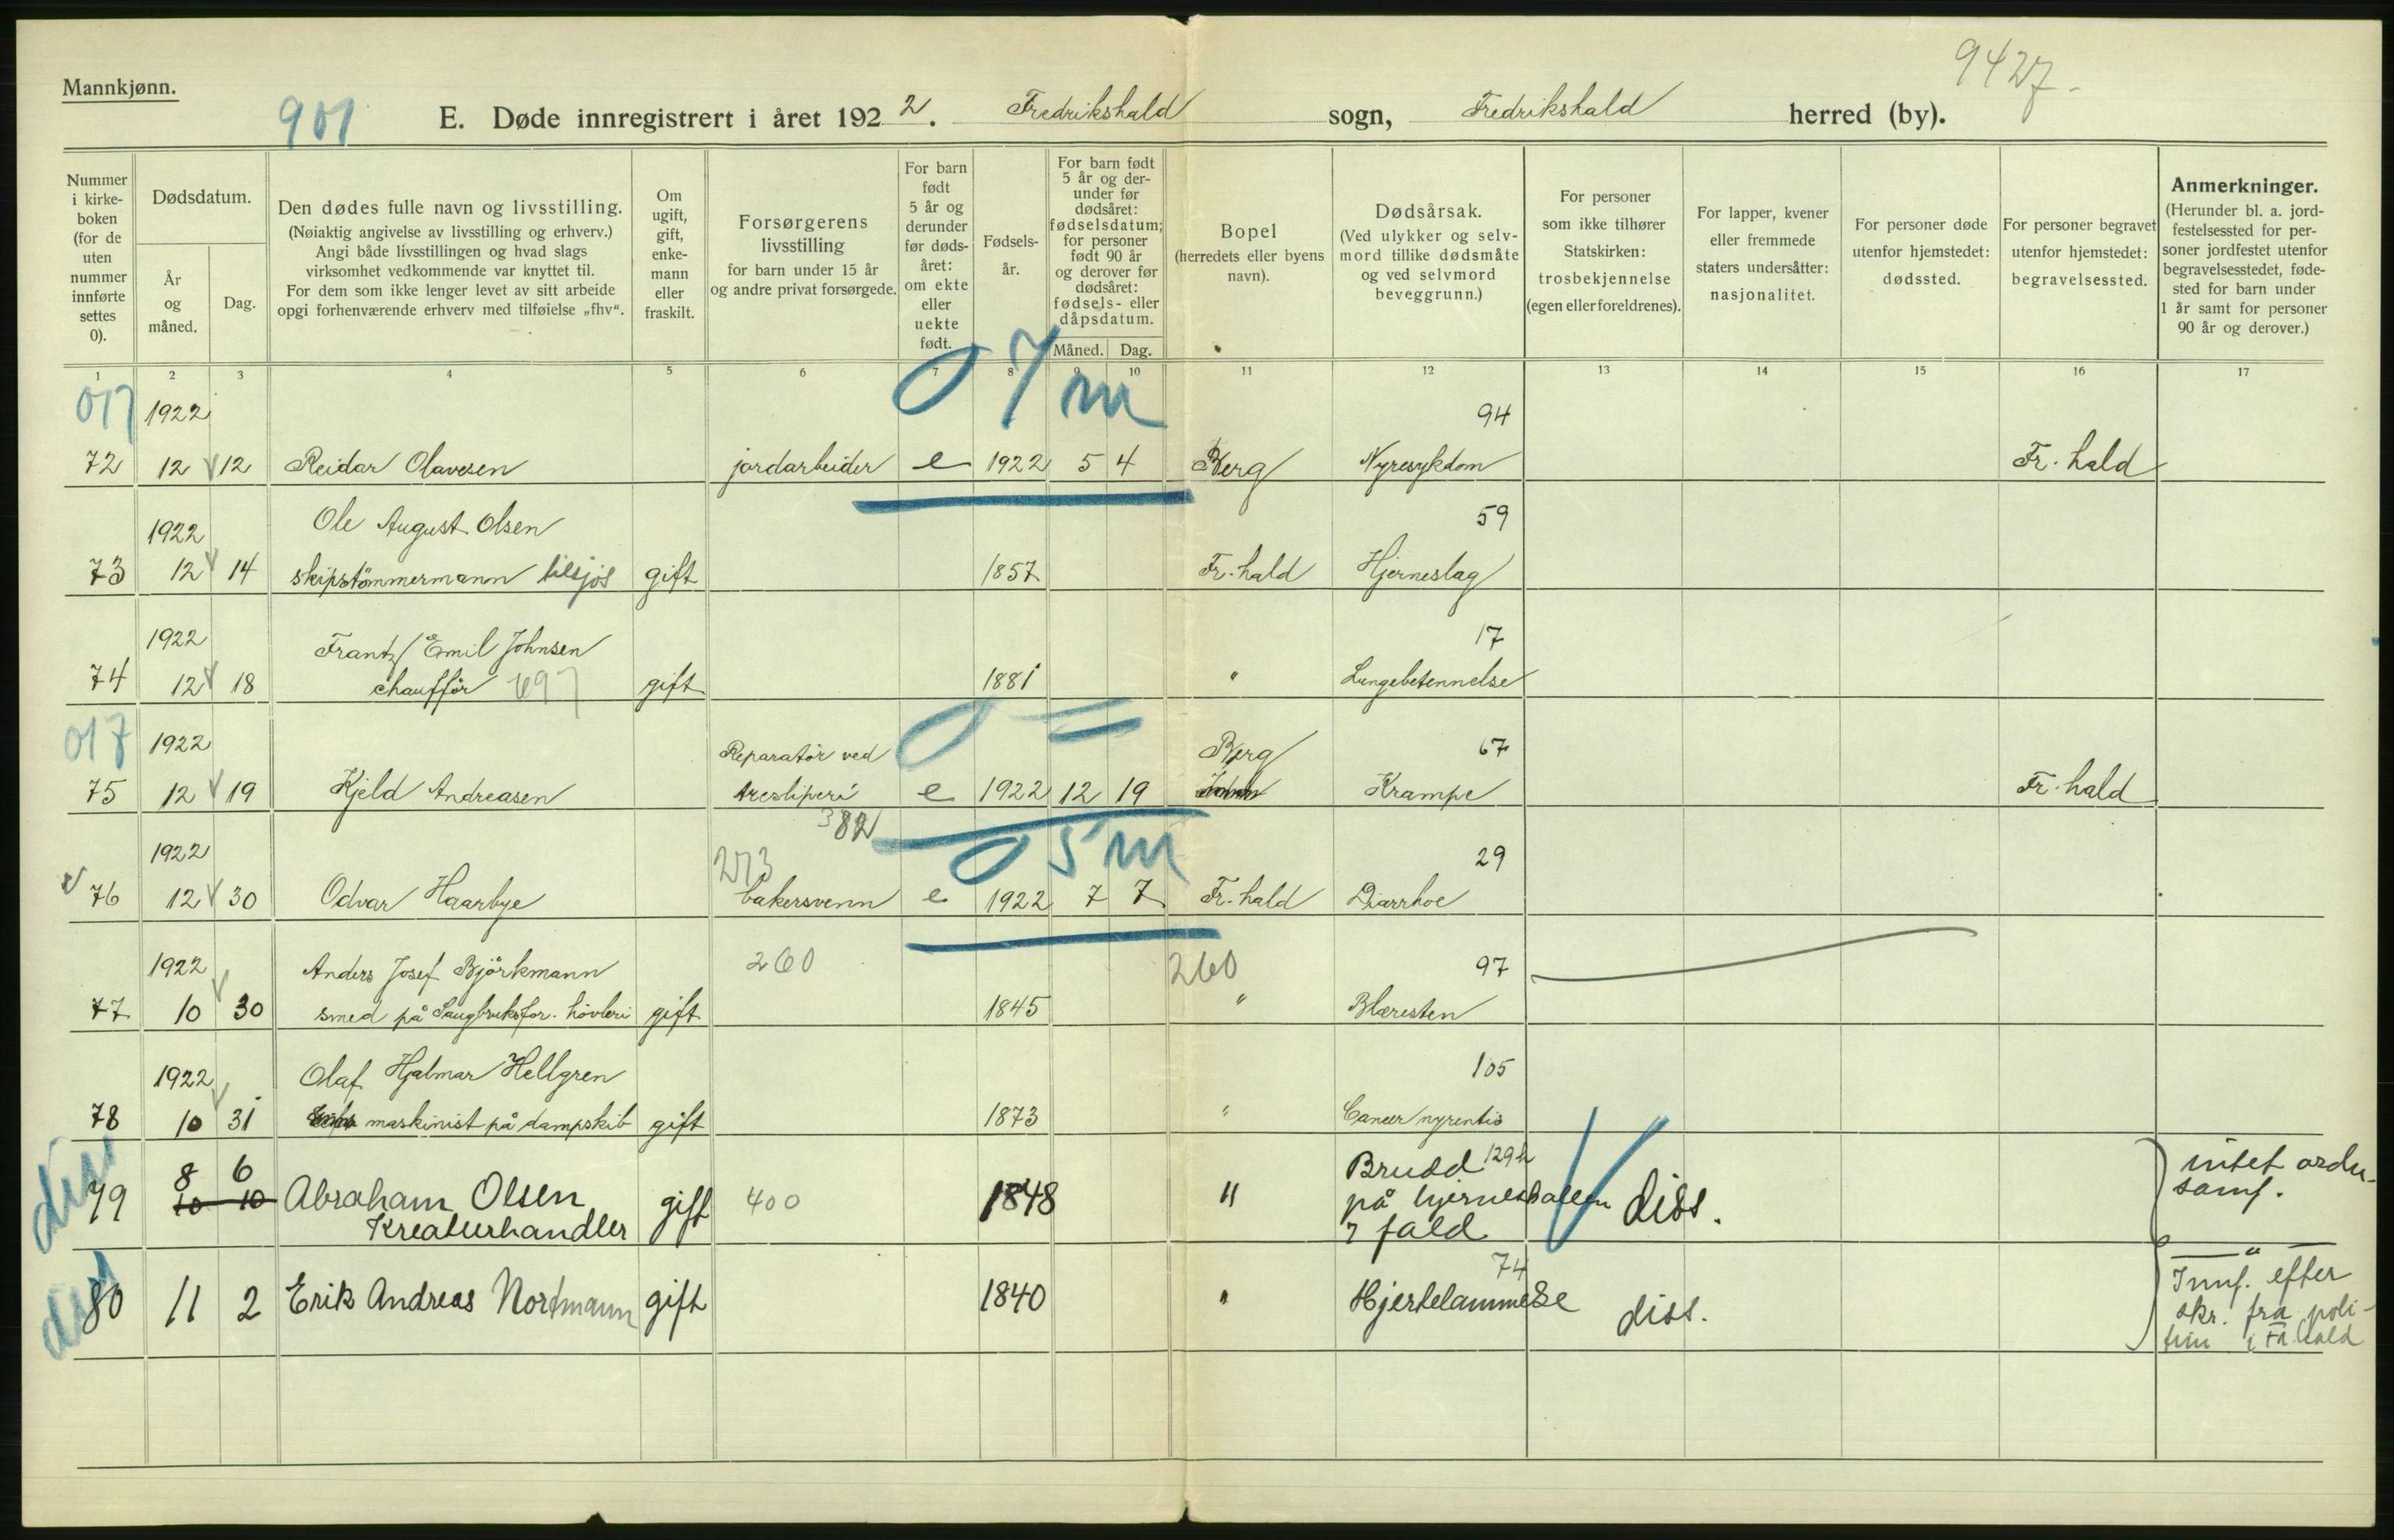 Mannkjønn.
9427.
901
E. Døde innregistrert i året 1922. Fredrikshald sogn, Fredrikshald herred (by).
Nummer i kirke-boken (for de uten nummer innførte settes 0).
Dødsdatum.
År og måned.
Dag.
Den dødes fulle navn og livsstilling.
(Nøiaktig angivelse av livsstilling og erhverv.)
Angi både livsstillingen og hvad slags
virksomhet vedkommende var knyttet til.
For dem som ikke lenger levet av sitt arbeide
opgi forhenværende erhverv med tilføielse „fhv“.
Om ugift, gift, enke-mann eller fraskilt.
Forsørgerens livsstilling
for barn under 15 år
og andre privat forsørgede.
For barn født 5 år og derunder før døds-året: om ekte eller uekte født.
Fødsels-år.
For barn født 5 år og der-under før dødsåret: fødselsdatum; for personer født 90 år og derover før dødsåret: fødsels- eller dåpsdatum.
Måned. Dag.
Bopel
(herredets eller byens navn).
Dødsårsak.
(Ved ulykker og selv-mord tillike dødsmåte og ved selvmord beveggrunn.)
For personer som ikke tilhører Statskirken: trosbekjennelse (egen eller foreldrenes).
For lapper, kvener eller fremmede staters undersåtter: nasjonalitet.
For personer døde utenfor hjemstedet: dødssted.
For personer begravet utenfor hjemstedet: begravelsessted.
Anmerkninger.
(Herunder bl. a. jord-festelsessted for per-soner jordfestet utenfor begravelsesstedet, føde-sted for barn under 1 år samt for personer 90 år og derover.)
1 2 3 4 5 6 7 8 9 10 11 12 13 14 15 16 17
017 1922 0 7 m 94
72 12 12 Reidar Olavesen jordarbeider e 1922 5 4 Berg Nyresykdom Fr. hald
1922 Ole August Olsen 59
73 12 14 skipstömmermann tilsjøs gift 1857 Fr. hald Hjerneslag
1922 Frantz Emil Johnsen 17
74 12 18 chaufför gift 1881 " Lungebetennelse
017 1922 Reparatör ved 0 = Berg 67
75 12 19 Kjeld Andreasen tresliperi e 1922 12 19 Krampe Fr. hald
382
1922 273 0 5 m 29
76 12 30 Odvar Haarbye bakersvenn e 1922 7 7 Fr. hald Diarrhoe
1922 Anders Josef Björkmann 260 260 97
77 10 30 smed på Saugbruksfor. hövleri gift 1845 " Blæresten
1922 Olaf Hjalmar Hellgren 105
78 10 31 maskinist på dampskib gift 1873 " Cancer nyrentis
diss 8 6 Brudd 129h intet ordn.
79 10 10 Abraham Olsen gift 400 1848 " på hjerneskallen diss. samf.
Kreaturhandler v fald
diss 74 — " —
80 11 2 Erik Andreas Nortmann gift 1840 " Hjertelammelse diss. Innf. efter
skr. fra poli-
tiin i Fr. hald